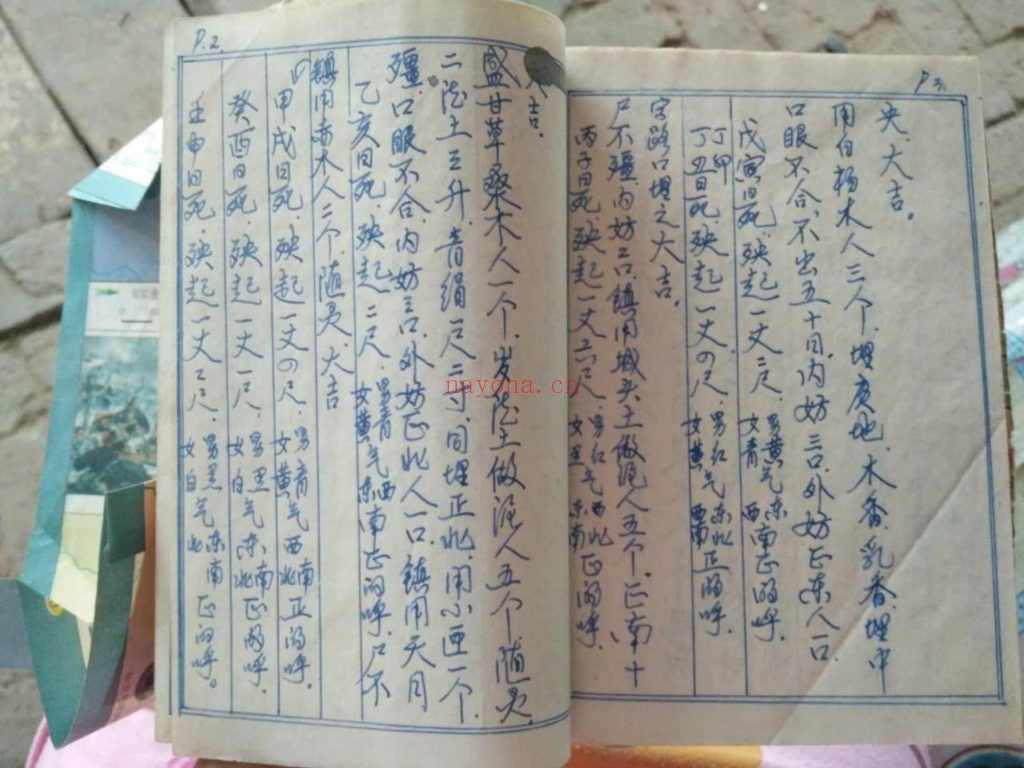 P.2.
壬申日死.殃起一丈2尺.男黑女白气东南北正的呼。
癸酉日死.殃起一丈一尺.男黑女白气东南北正的呼.
甲戌日死.殃起一丈四尺.男青女黄气西南北正的呼.
镇用赤木人二个.随灵.大吉
乙亥日死 殃起 二尺.男青女黄气西东南正的呼.尸不
殭.口眼不合.内妨三口.外妨正北人一口.镇用天月
二德土三升.青绢一尺二寸.同埋正北.用小匣一个
盛甘草桑木人一个.岁德土做泥人五个随灵
大吉.
P3.
丙子日死.殃起一丈六尺.男红女黑气西北东南正的呼.
尸不殭.内妨三口.镇用城头土做泥人五个.正南十
字路口埋之大吉。
丁丑日死.殃起一丈四尺.男红女黄气东北西南正的呼.
丁卯
戊寅日死.殃起一丈三尺.男黄女青气东西南正的呼.
口眼不合.不出五十日.内妨三口.外妨正东人一口.
用白杨木人三个.埋庚地.木香.乳香.埋中
央.大吉。
nayona.cn